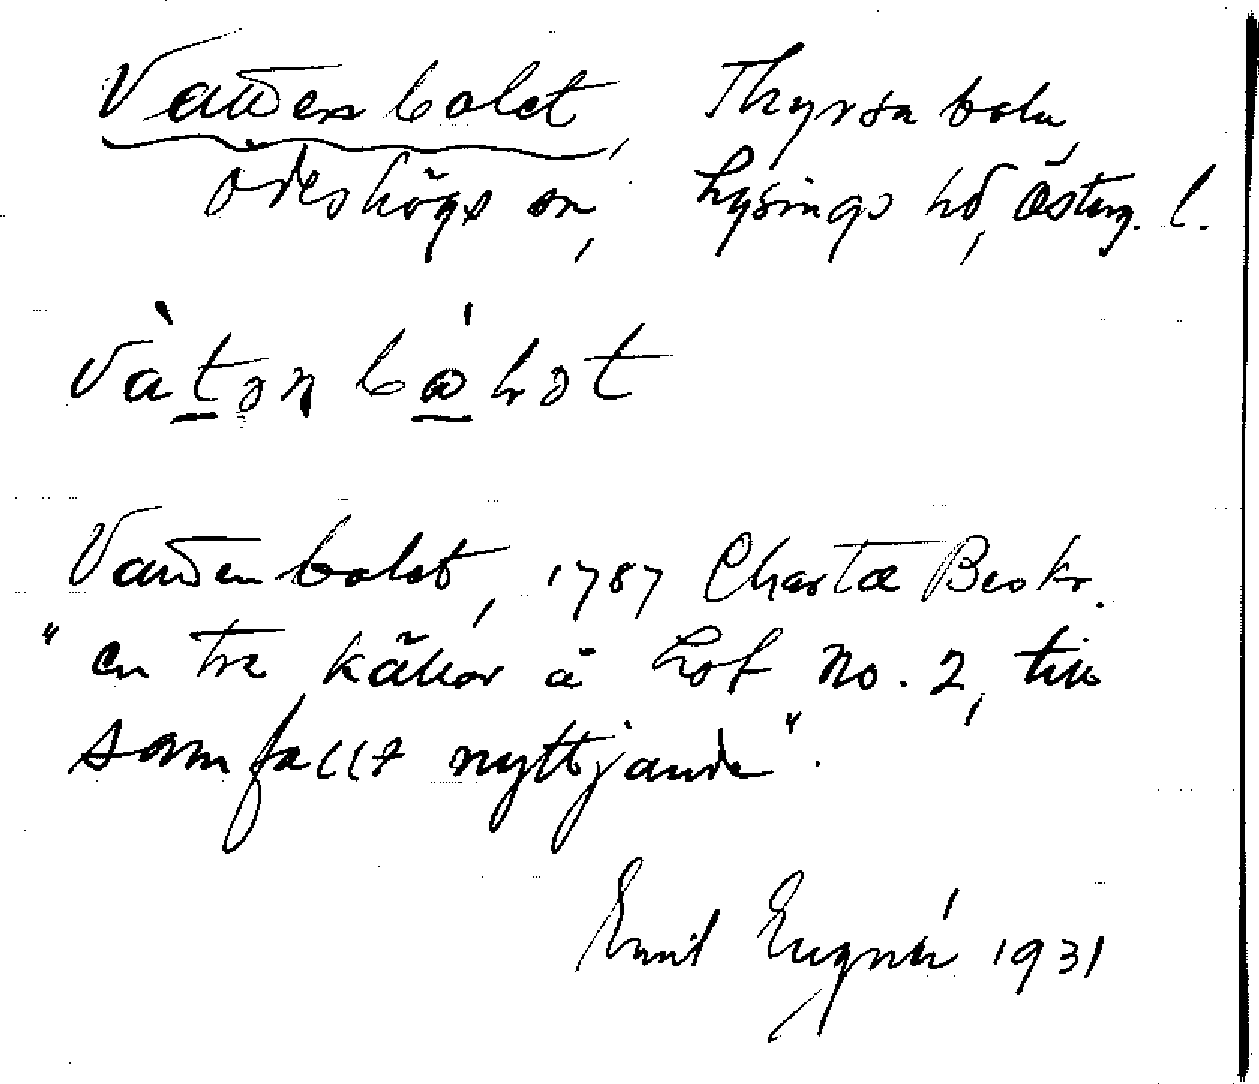 Vattenbolet, Thyrsabola,
Ödeshögs sn, Lysings hd, Österg. l.
Vàtən bɷ̀lət
Vattenbolet, 1787 Charta Beskr.
"en tre källor å Hof No. 2, till
samfällt nyttjande".
Emil 1931